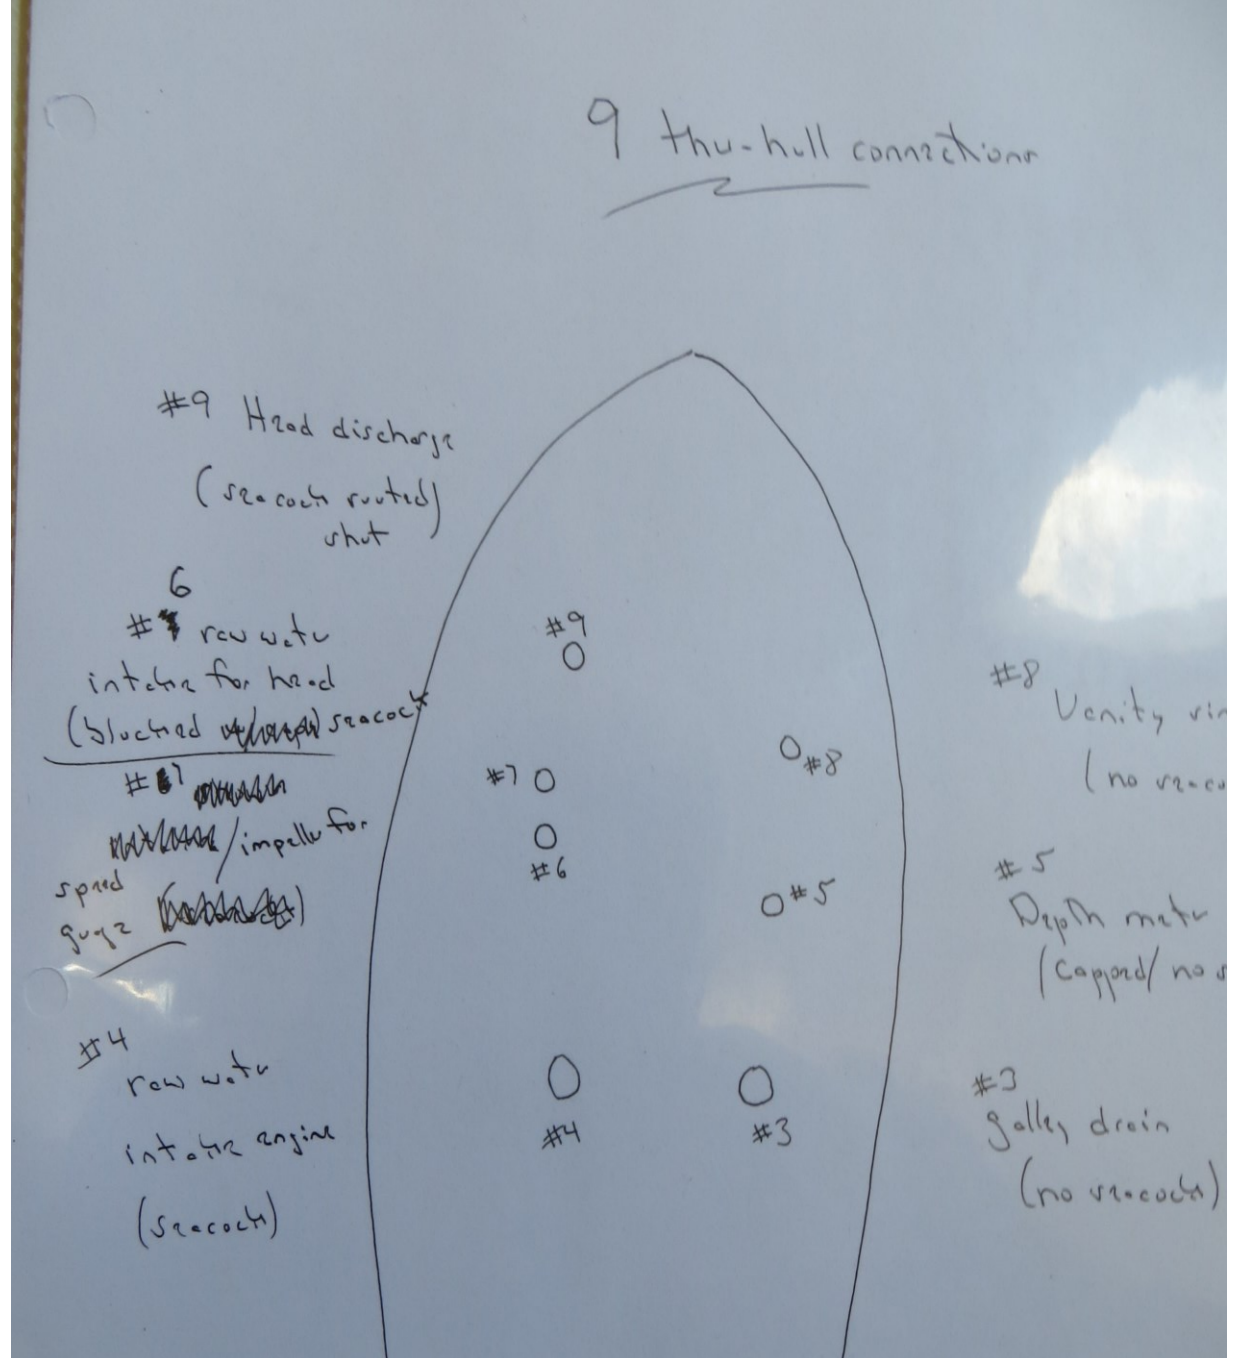 9 thu-hull connections
#9 Head discharge
(seacock rusted)
shut
6
# raw water
intake for head
(blocked seacock
#7
/impeller for
speed
guage
#4
raw water
intake engine
(seacock)
#9
#7
#6
#8
#5
#4
#3
#8
Vanity sin
(no seaco
#5
Depth meter
(Capped/ no s
#3
galley drain
(no seacock)